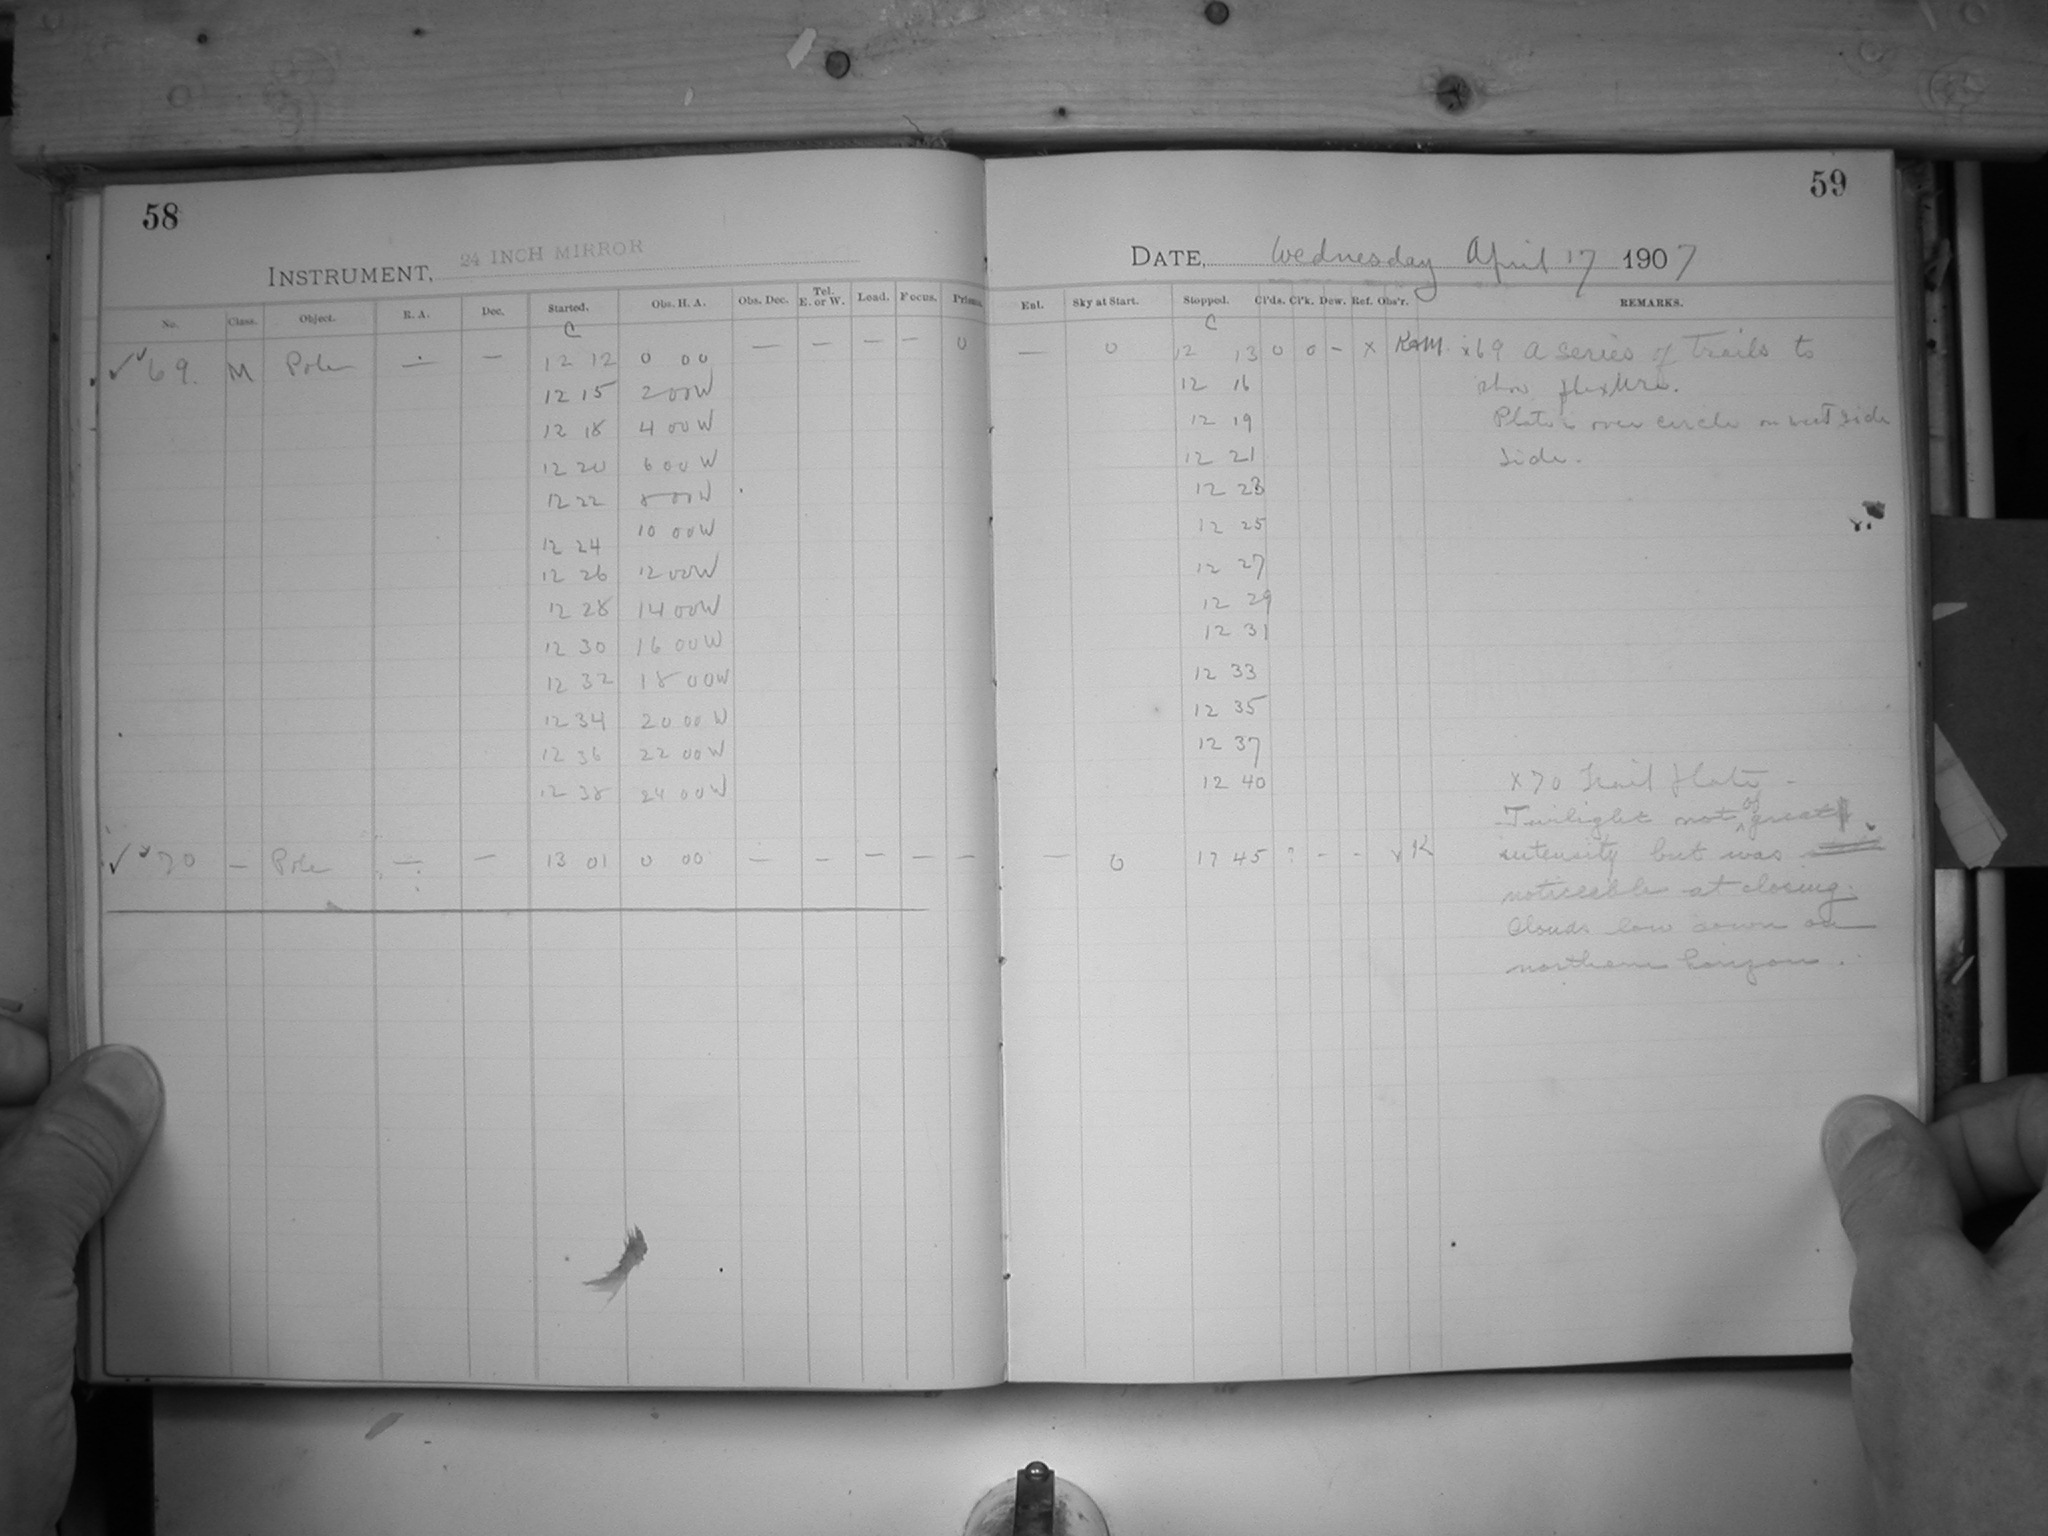 58
INSTRUMENT, 24 INCH MIRROR
No. Class. Object. R. A. Dec. Started. Obs. H. A. Obs. Dec. Tel. E. or W. Load. Focus. Prism.
C
✓ ✓ 69. M Pole — — 12 12 0 00 — — — — 0
12 15 2 00 W
12 18 4 00 W
12 20 6 00 W
12 22 8 00 W
12 24 10 00 W
12 26 12 00 W
12 28 14 00 W
12 30 16 00 W
12 32 18 00 W
12 34 20 00 W
12 36 22 00 W
12 38 24 00 W
✓ ✓ 70 — Pole — — 13 01 0 00 — — — — —
59
DATE, Wednesday April 17 1907
Ent. Sky at Start. Stopped. Cl'ds. Cl'k. Dew. Ref. Obs'r. REMARKS.
C
— 0 12 13 0 0 – x x 69 A series of Trails to
12 16 show flexure.
12 19 Plate is over circle on west side
12 21 side.
12 23
12 25
12 27
12 29
12 31
12 33
12 35
12 37
12 40 x 70 Trail plate –
Twilight not of great
— 0 17 45 ? – – x K intensity but was
noticeable at closing.
Clouds low down on
northern horizon.